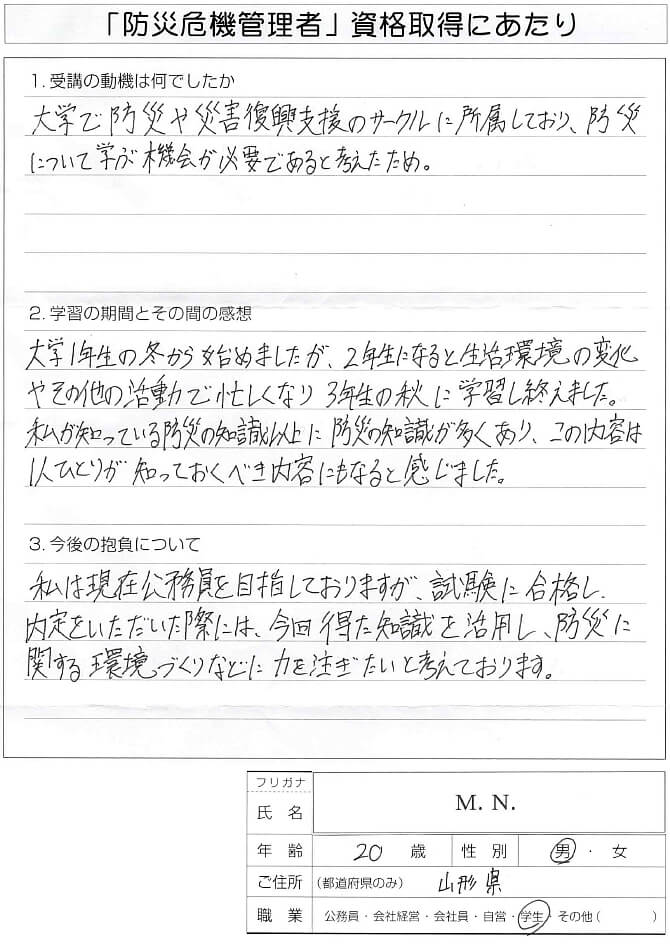 「防災危機管理者」資格取得にあたり
1. 受講の動機は何でしたか
大学で防災や災害復興支援のサークルに所属しており、防災
について学ぶ機会が必要であると考えたため。
2. 学習の期間とその間の感想
大学1年生の冬から始めましたが、2年生になると生活環境の変化
やその他の活動で忙しくなり3年生の秋に学習し終えました。
私が知っている防災の知識以上に防災の知識が多くあり、この内容は
1人ひとりが知っておくべき内容にもなると感じました。
3. 今後の抱負について
私は現在公務員を目指しておりますが、試験に合格し、
内定をいただいた際には、今回得た知識を活用し、防災に
関する環境づくりなどに力を注ぎたいと考えております。
フリガナ
氏名 M. N.
年齢 20 歳 性別 男・女
ご住所 (都道府県のみ) 山形県
職業 公務員・会社経営・会社員・自営・学生・その他( )